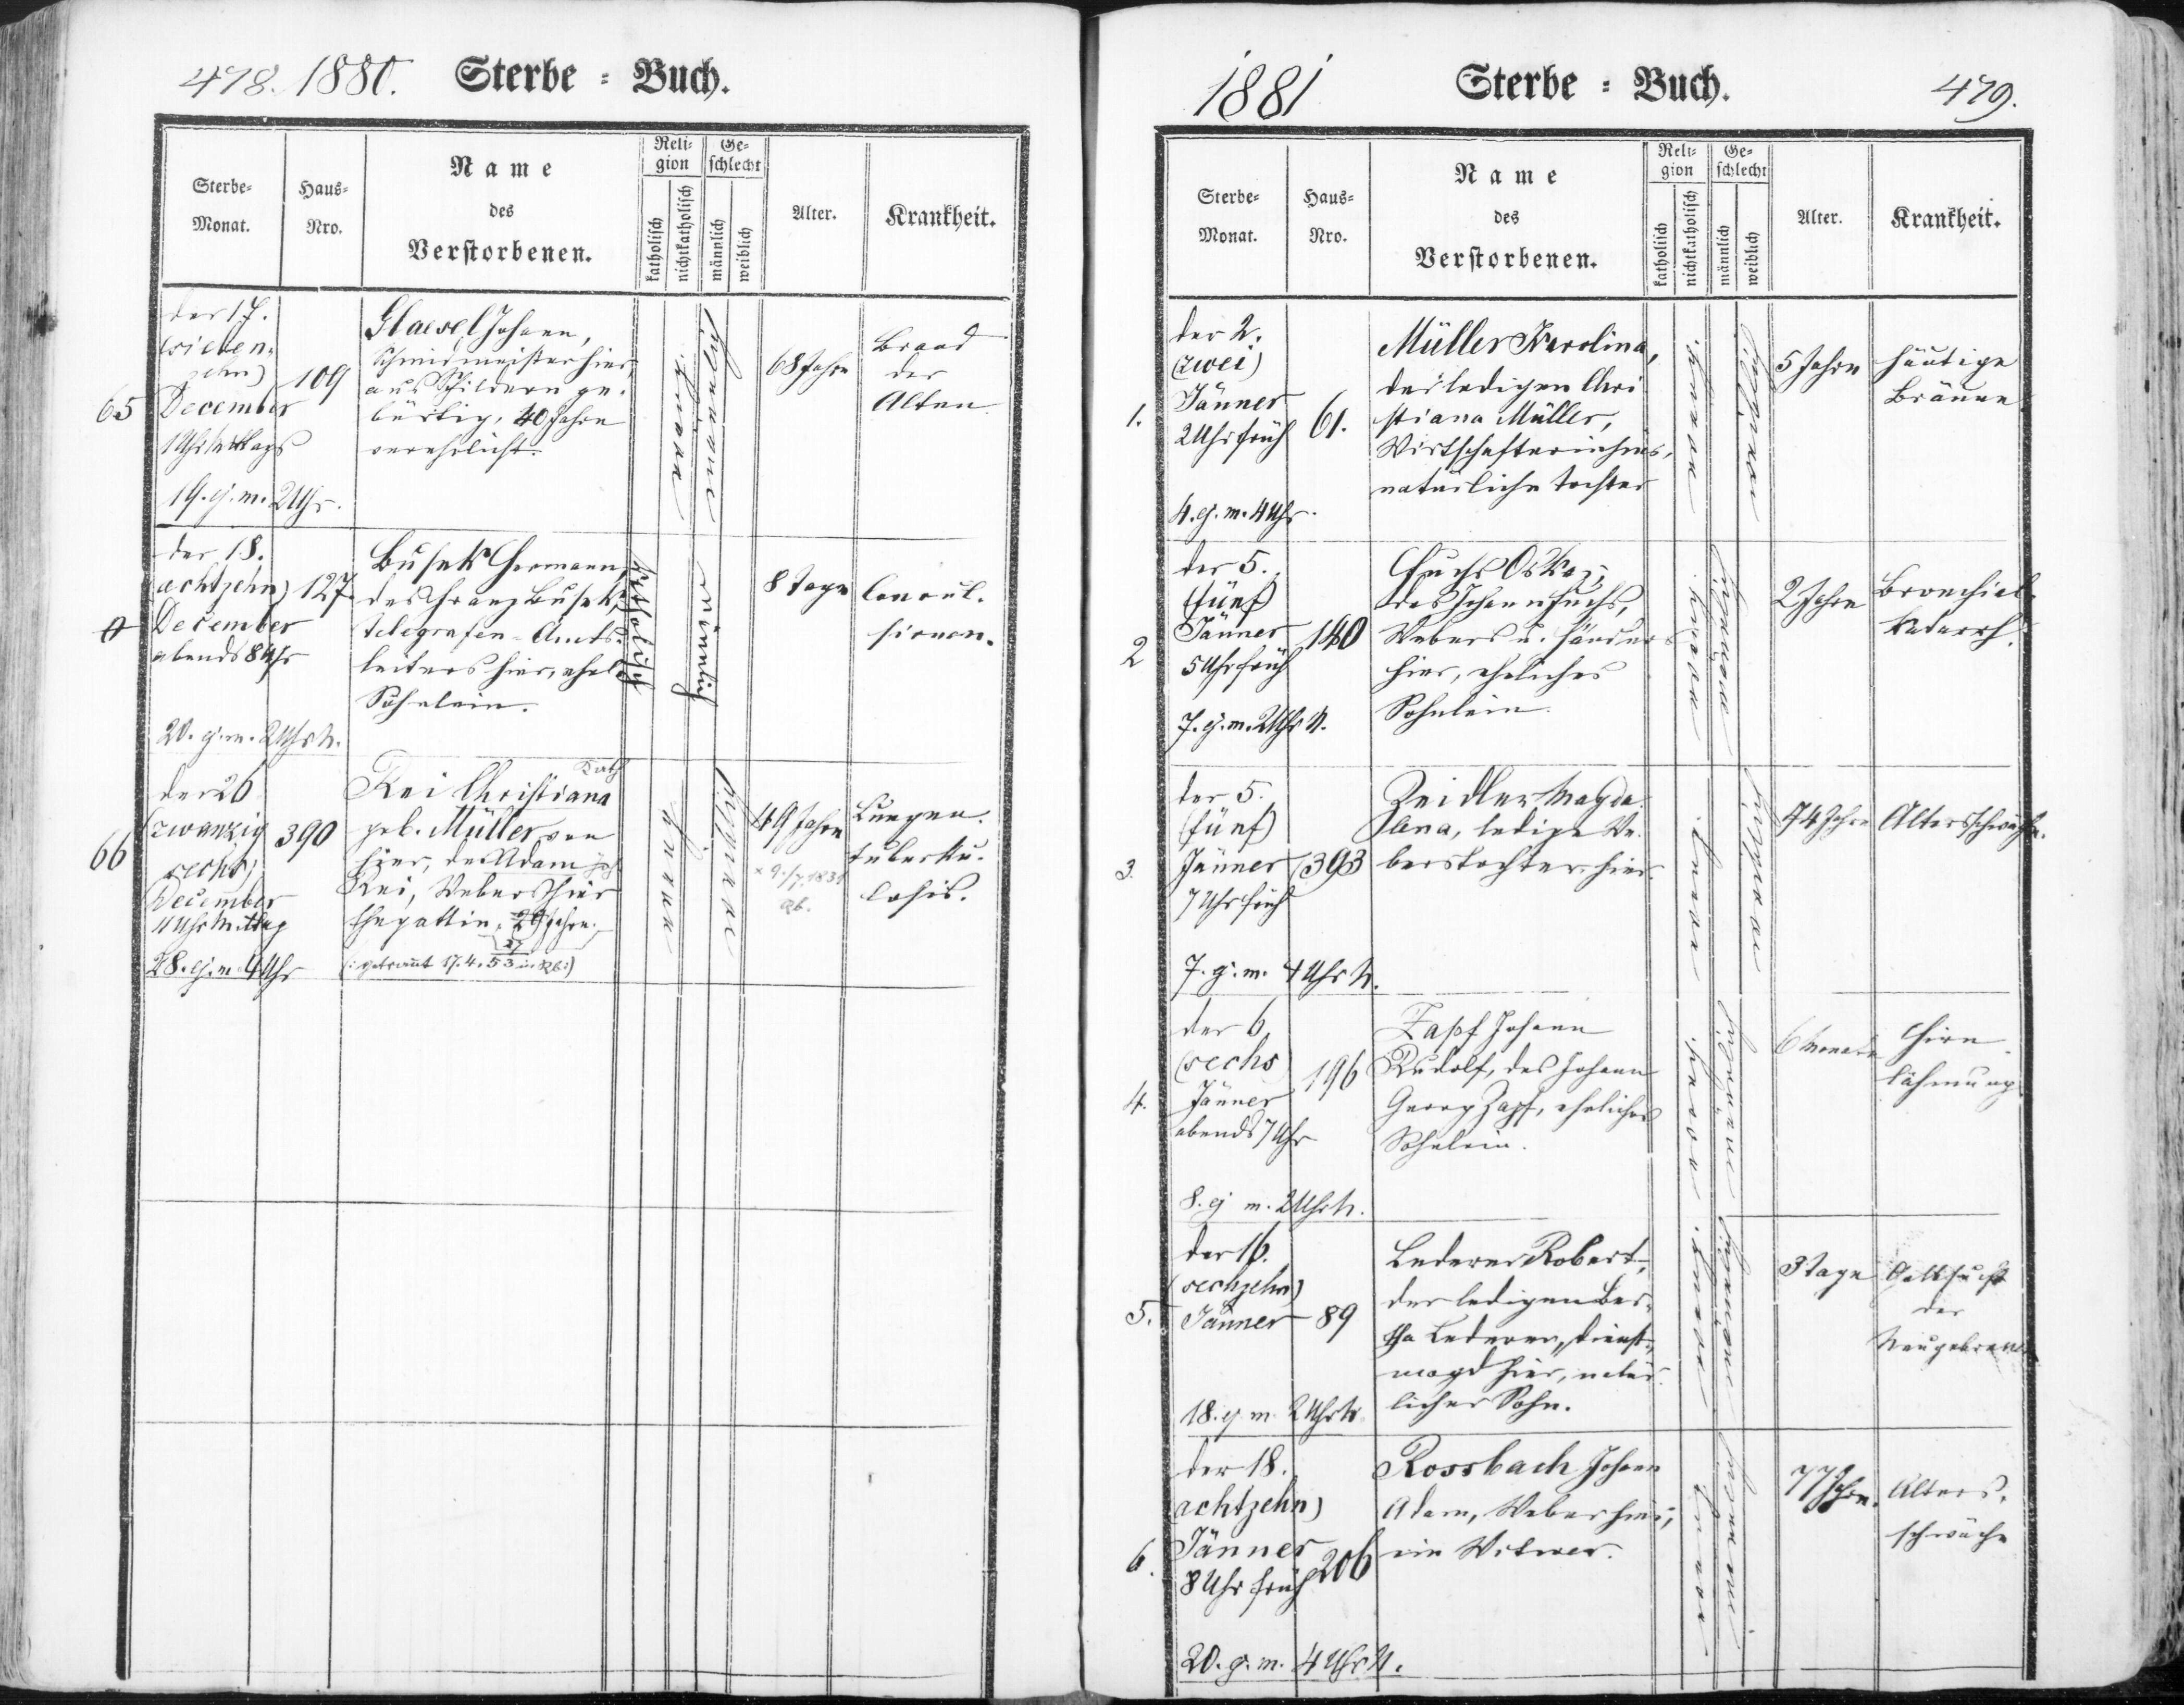 478. 1880. Sterbe = Buch.
Sterbe-Monat. Haus-Nro. Name des Verstorbenen. Religion katholisch nichtkatholisch Geschlecht männlich weiblich Alter. Krankheit.
65
der 17.
(sieben-
zehn)
December
1 Uhr
19. ej. m. 2 Uhr.
109
Glaesel Johann,
Schmidmeister hier,
aus Schildern ge-
bürtig, 40 Jahre
verehelicht.
68 Jahre
Brand
der
Alten
der 18.
(achtzehn)
December
abends 8 Uhr
20. ej. m. 2 Uhr N.
127
Busek Hermann,
des Franz Busek,
Telegrafen-Amts-
leiters hier, ehel.
Söhnlein.
katholisch
männlich
8 Tage
Convul-
sionen.
66
der 26
(zwanzig
sechs)
December
11 Uhr Mittag
28. ej. m. 4 Uhr
390
Rei Christiana
geb. Müller von
hier, des Adam
Rei, Webers hier
Ehegattin, 26 Jahre.
27
(: getraut 17.4.53 in Rb:)
49 Jahre
* 9./7.1831
Rb.
Lungen-
tuberku-
losis.
1881 Sterbe = Buch. 479.
Sterbe-Monat. Haus-Nro. Name des Verstorbenen. Religion katholisch nichtkatholisch Geschlecht männlich weiblich Alter. Krankheit.
1.
der 2.
(zwei)
Jänner
2 Uhr früh
4. ej. m. 4 Uhr.
61.
Müller Karolina,
der ledigen Chri-
stiana Müller,
Wirtschafterin hier,
natürliche Tochter
5 Jahre
häutige
Bräune
2
der 5.
(fünf)
Jänner
5 Uhr früh
7. ej. m. 2 Uhr N.
140
Fuchs Oskar,
des Johann Fuchs,
Webers u.
hier, eheliches
Söhnlein.
2 Jahre
Bronchial-
katarrh.
3.
der 5.
(fünf)
Jänner
7 Uhr früh
7. ej. m. 4 Uhr N.
393
Zeidler Magda-
lena, ledige We-
berstochter hier.
74 Jahre
Altersschwäche.
4.
der 6.
(sechs
Jänner
abends 7 Uhr
8. ej m. 2 Uhr N.
196
Zapf Johann
Rudolf, des Johann
Georg Zapf, eheliches
Söhnlein.
6 Monate
Hirn-
lähmung
5.
der 16.
(sechzehn)
Jänner
18. ej m. 2 Uhr N.
89
Lederer Robert,
der ledigen Ber-
tha Lederer, Dienst-
magd hier, natür-
licher Sohn.
3 Tage
Gelbsucht
der
Neugebornen
6.
der 18.
(achtzehn)
Jänner
8 Uhr früh
20. ej. m. 4 Uhr N.
206
Rossbach Johann
Adam, Weber hier,
ein Witwer.
77 Jahre.
Alters-
schwäche